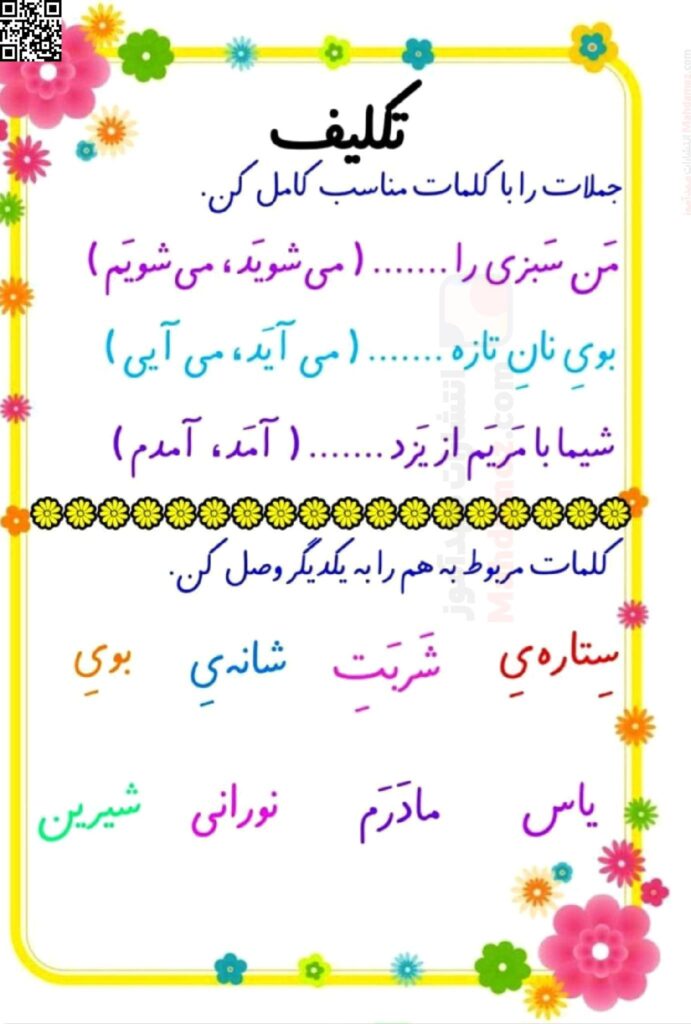 تکلیف
جملات را با کلمات مناسب کامل کن.
مَن سَبزی را ....... ( می‌شویَد، می‌شویَم )
بویِ نانِ تازه ....... ( می آیَد، می آیی )
شیما با مَریَم از یَزد ....... ( آمَد، آمدم )
کلمات مربوط به هم را به یکدیگر وصل کن.
سِتاره‌یِ شَربَتِ شانه‌یِ بویِ
یاس مادَرَم نورانی شیرین
انتشارات مهدآموز
Mahdamuz.com
انتشارات مهدآموز Mahdamuz.com